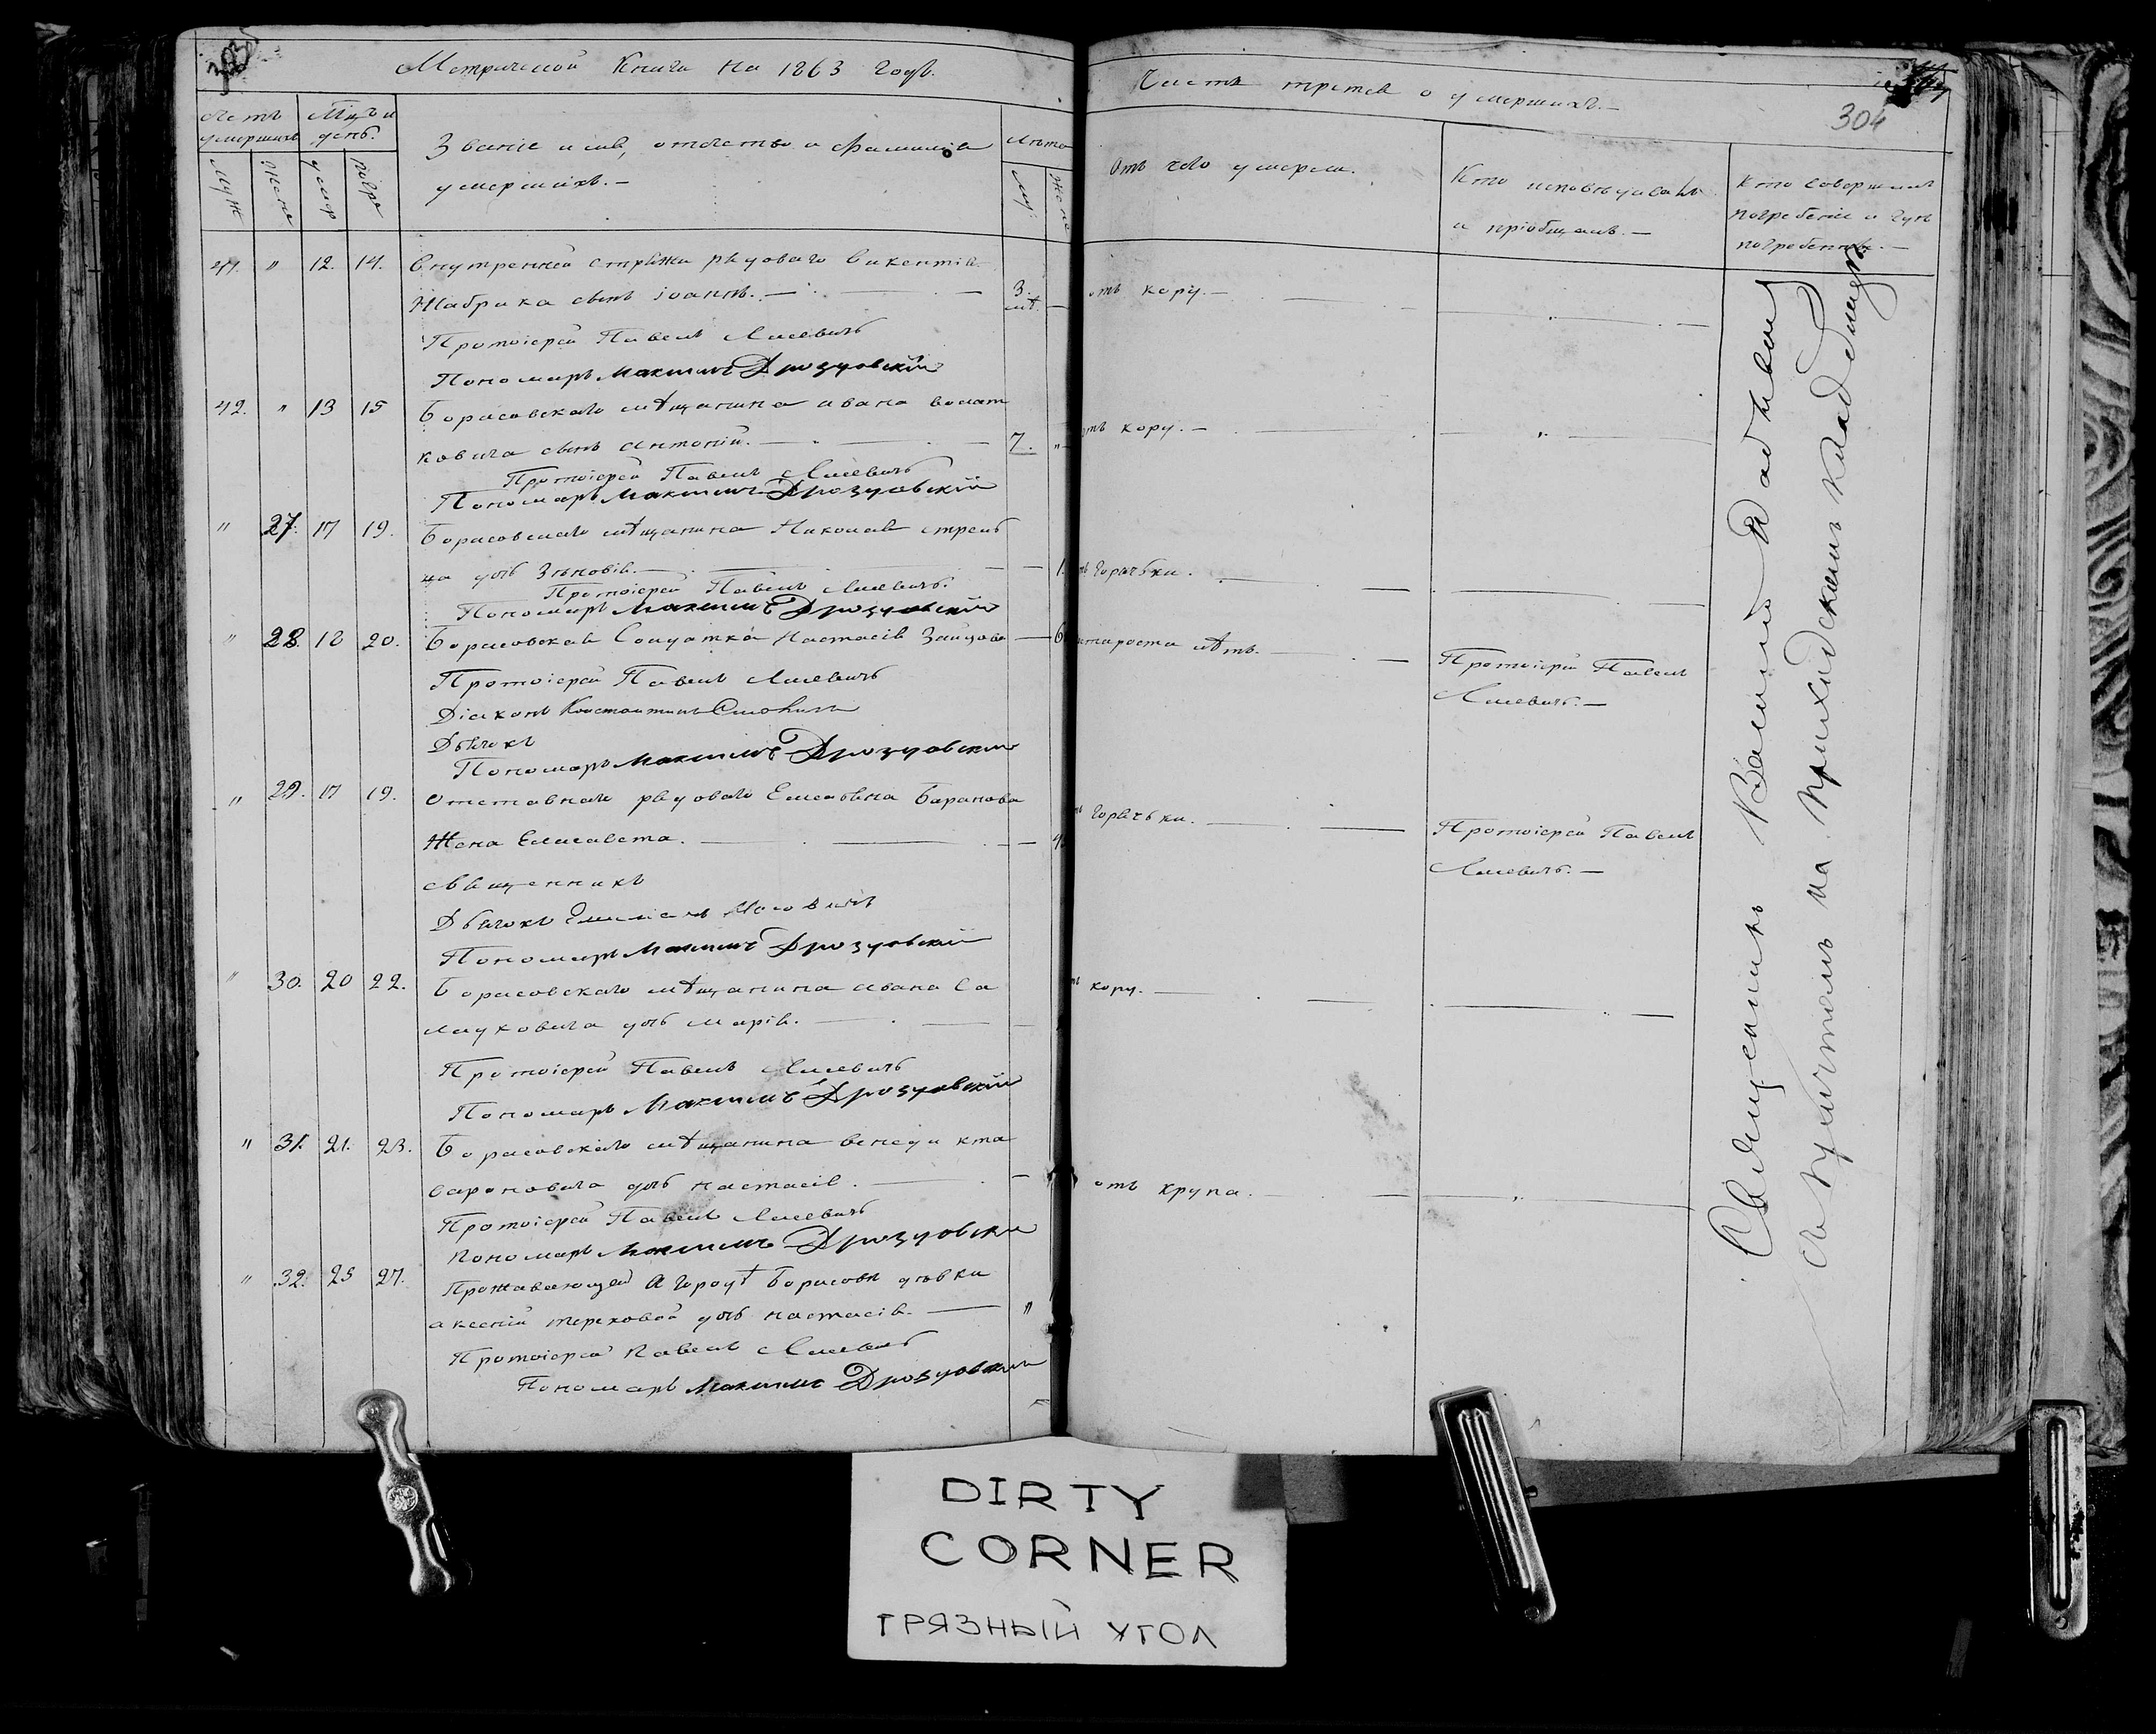 303
Метрической Книги на 1863 годъ.
Счетъ умершихъ
Мцъ и день.
Званіе имя, отчество и фамилія
умершихъ. —
Лѣта
Муж
Жена
умер
погре
му:
жен
41. " 12. 14. Внутренней стражи рядоваго Викентія
Жабрика сынъ Іоаннъ. — 3. лѣ.
Протоіерей Павелъ Лисевичъ
Пономарь Максимъ Дрозуовскій
42. " 13 15 Борисовскаго мѣщанина Ивана
ковича сынъ Антоній. — 7. "
Протоіерей Павелъ Лисевичъ
Пономарь Максимъ Дрозуовскій
" 27. 17 19. Борисовскаго мѣщанина Николая
дочь Зѣновія. — 1.
Протоіерей Павелъ Лисевичъ.
Пономарь Максимъ Дрозуовскій
" 28. 18 20. Борисовская Солдатка Настасія Зайцова — 6
Протоіерей Павелъ Лисевичъ
Діаконъ Константинъ
Дьячокъ
Пономарь Максимъ Дрозуовскій
" 29. 17 19. Отставнаго рядоваго Баранова
Жена Елисавета. — 4
Священникъ
Дьячокъ
Пономарь Максимъ Дрозуовскій
" 30. 20 22. Борисовскаго мѣщанина Ивана Са
дочь Марія. —
Протоіерей Павелъ Лисевичъ
Пономарь Максимъ Дрозуовскій
" 31. 21. 23. Борисовскаго мѣщанина Венедикта
дочь Настасія. —
Протоіерей Павелъ Лисевичъ
Пономарь Максимъ Дрозуовскій
" 32. 25 27. Проживающей в городѣ Борисовѣ дѣвки
Аксеніи Тереховой дочь Настасія. — "
Протоіерей Павелъ Лисевичъ
Пономарь Максимъ Дрозуовскій
Часть третья о умершихъ. —
304
Отъ чего умерли.
Кто исповѣдывалъ
и пріобщалъ. —
Кто совершалъ
погребеніе и гдѣ
погребенны. —
отъ кору. —
отъ кору. —
горячки.
старости лѣтъ. — Протоіерей Павелъ
Лисевичъ. —
горячки. — Протоіерей Павелъ
Лисевичъ. —
кору. —
отъ крупа. —
Священникъ Василій
съ причтомъ на Приходскомъ кладбищѣ
DIRTY
CORNER
ГРЯЗНЫЙ УГОЛ